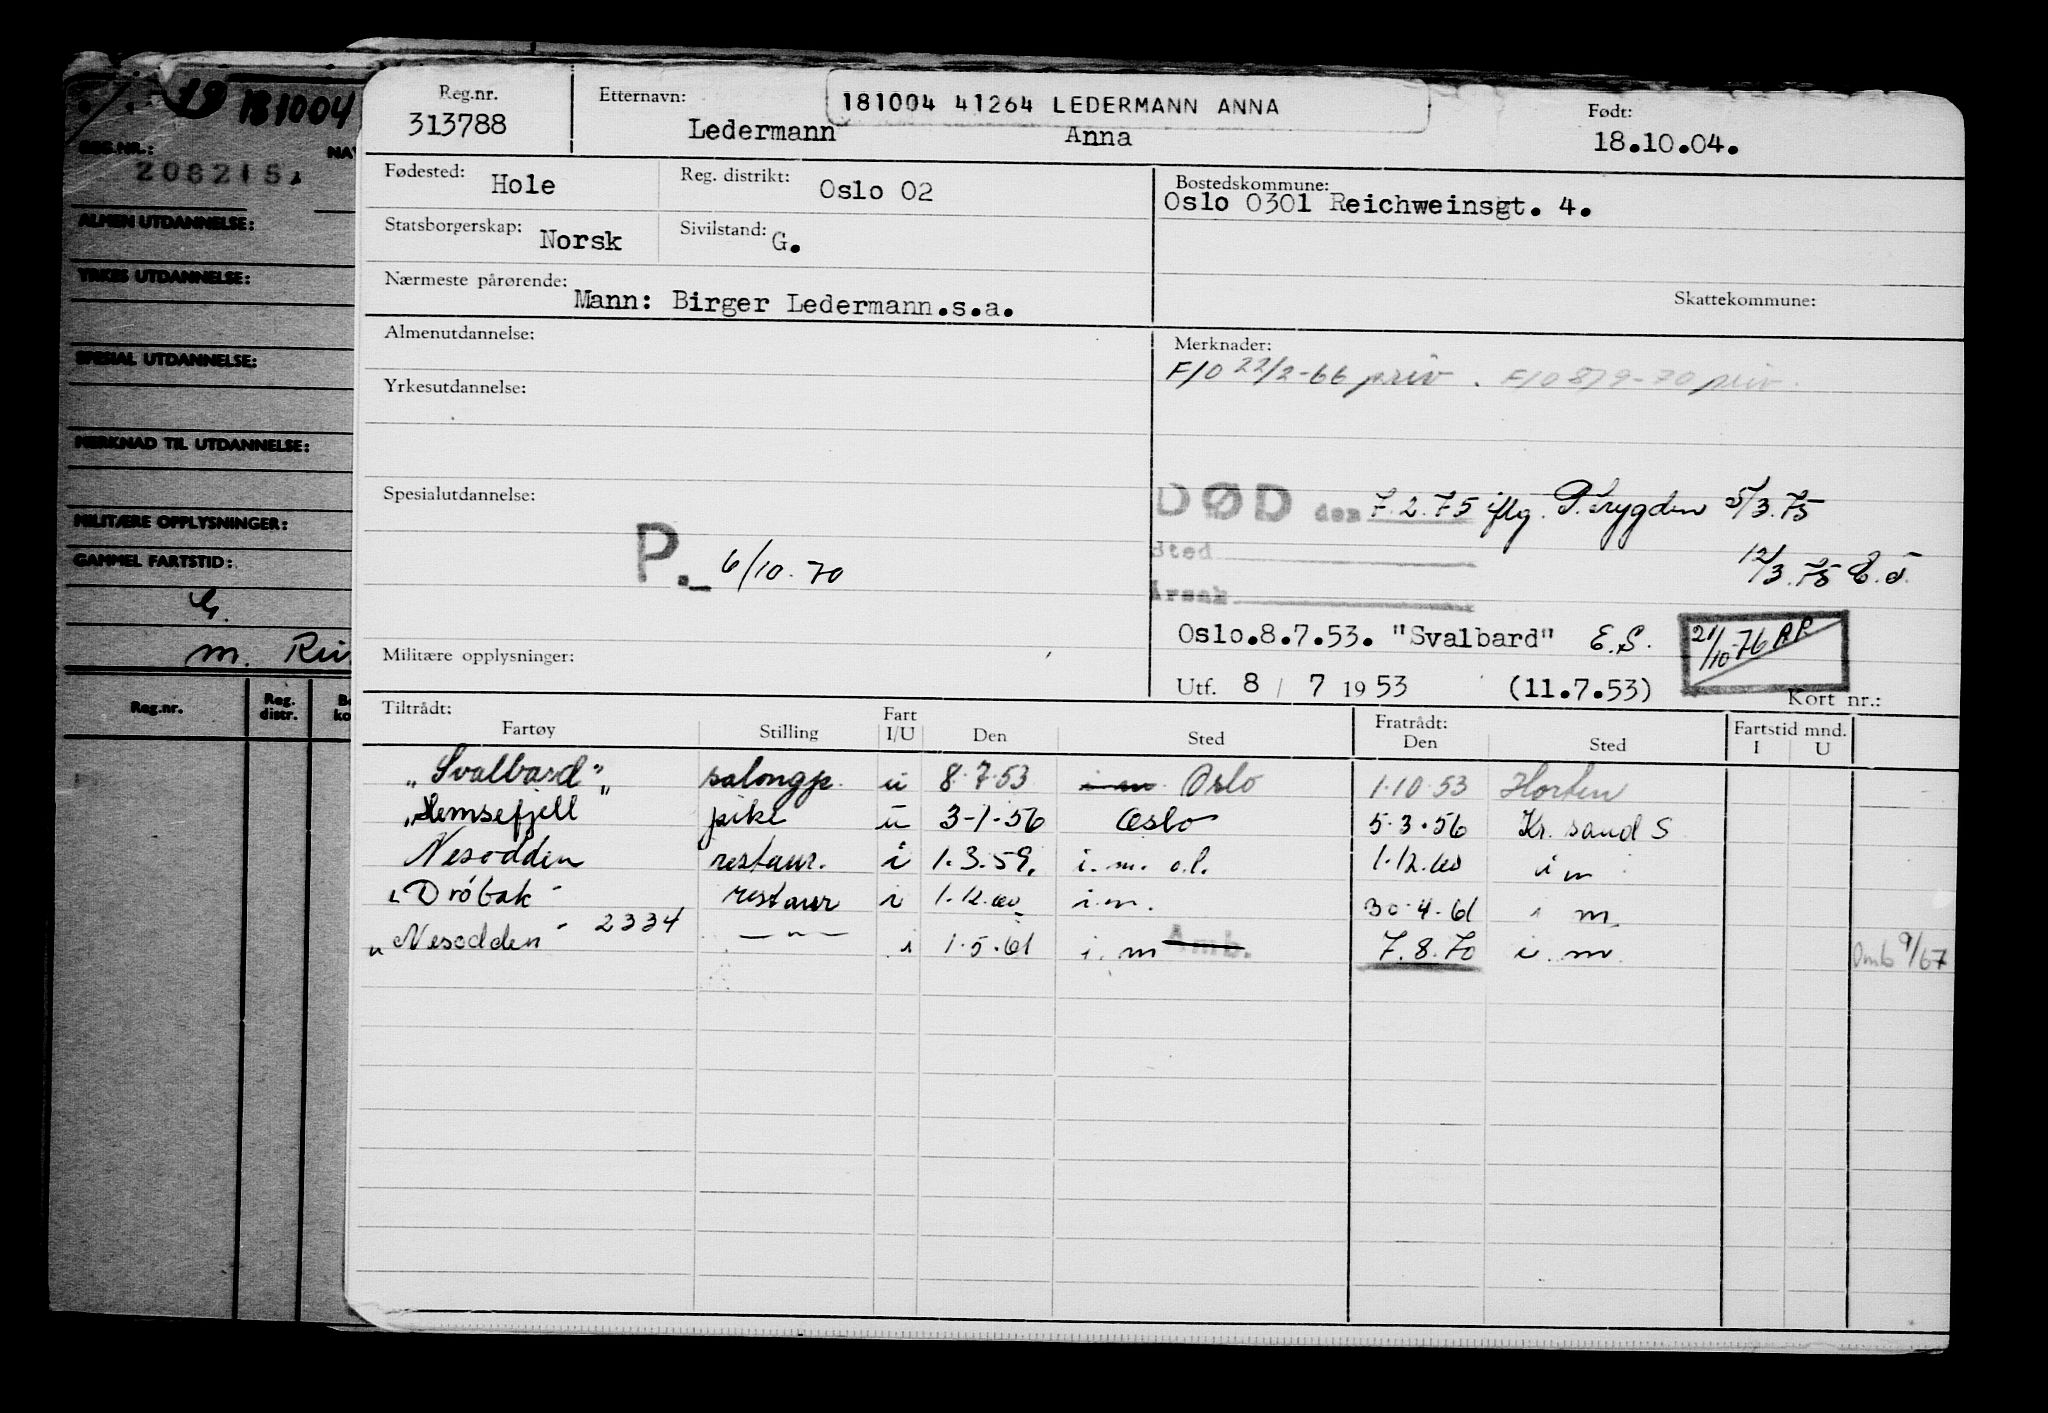 19 181004
REG.NR.:
206215
ALMEN UTDANNELSE:
YRKES UTDANNELSE:
SPESIAL UTDANNELSE:
MERKNAD TIL UTDANNELSE:
MILITÆRE OPPLYSNINGER:
GAMMEL FARTSTID:
G.
m.
Reg.nr. Reg. distr.
Reg.nr. Etternavn: 181004 41264 LEDERMANN ANNA Født:
313788 Ledermann Anna 18.10.04.
Fødested: Hole Reg. distrikt: Oslo 02 Bostedskommune:
Oslo 0301 Reichweinsgt. 4.
Statsborgerskap: Norsk Sivilstand: G.
Nærmeste pårørende: Mann: Birger Ledermann.s.a. Skattekommune:
Almenutdannelse: Merknader:
F/O 22/2-66 priv. F/O 8/9-70 priv.
Yrkesutdannelse:
Spesialutdannelse: DØD den 7.2.75 iflg. P.trygden 5/3.75
Sted 12/3.75
P. 6/10.70
Årsak
Oslo.8.7.53. "Svalbard" E.S. 21/10-76
Militære opplysninger:
Utf. 8 / 7 1953 (11.7.53) Kort nr.:
Tiltrådt: Fratrådt: Fartstid mnd.
Fartøy Stilling Fart I/U Den Sted Den Sted I U
"Svalbard" salongp. u 8.7.53 Oslo 1.10.53 Horten
"Hemsefjell pike u 3-1-56 Oslo 5.3.56 Kr. sand S
Nesodden restaur. i 1.3.59. i.m. o.l. 1.12.60 i m
"Drøbak" restaur i 1.12.60 i.m. 30.4.61 i m.
"Nesodden" 2334 —"— i 1.5.61 i. m Amb. 7.8.70 i. m. Omb 9/67